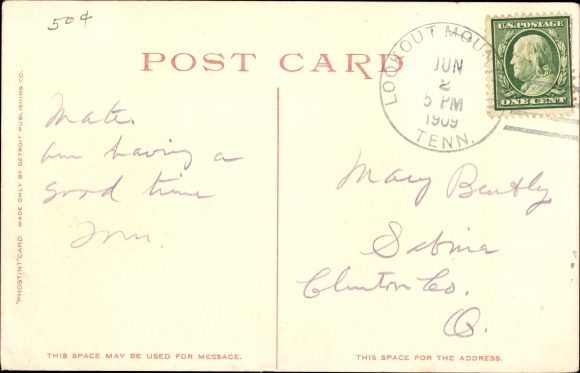 50¢
POST CARD
LOOKOUT MOUN
TENN.
JUN
2
5 PM
1909
U.S. POSTAGE
ONE CENT
Mate.
am having a
good time
Mary Bently
Sabina
Clinton Co.
O.
"PHOSTINT" CARD MADE ONLY BY DETROIT PUBLISHING CO.
THIS SPACE MAY BE USED FOR MESSAGE.
THIS SPACE FOR THE ADDRESS.